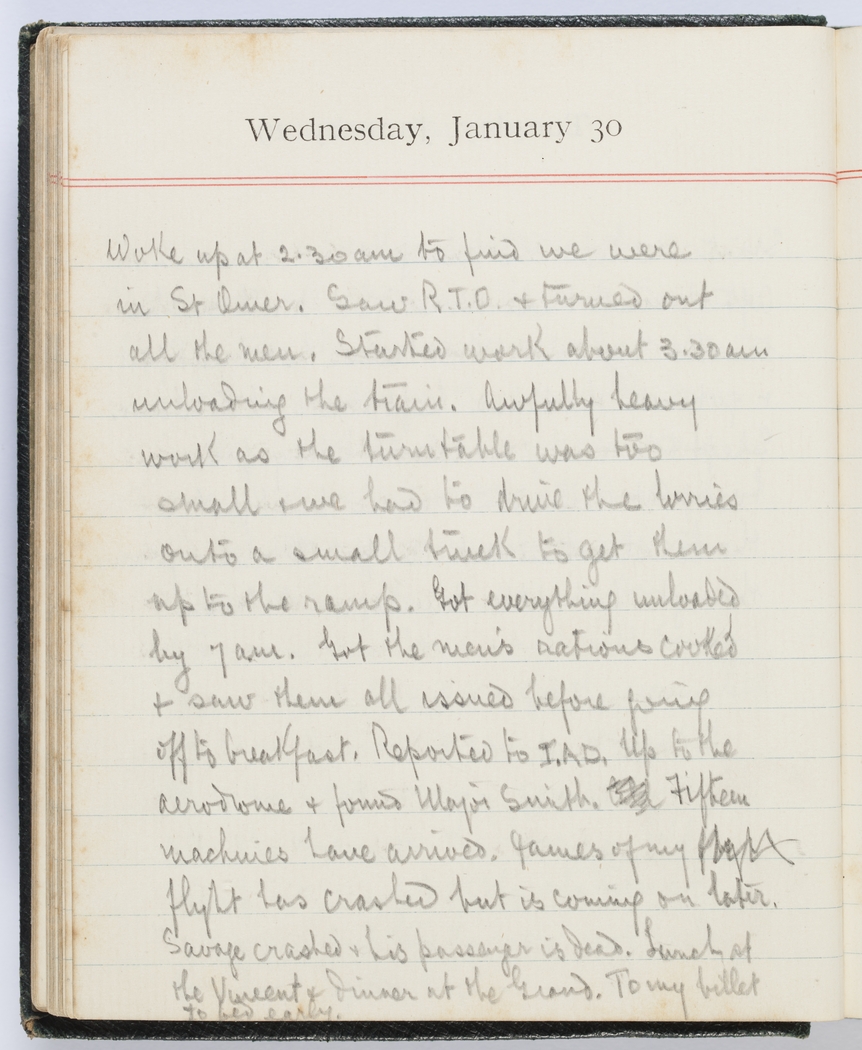 Wednesday, January 30
Woke up at 2.30am to find we were
in St Omer. Saw R.T.O. + turned out
all the men. Started work about 3.30am
unloading the train. Awfully heavy
work as the turntable was too
small + we had to drive the lorries
onto a small truck to get them
up to the ramp. Got everything unloaded
by 7am. Got the men's rations cooked
+ saw them all issued before going
off to breakfast. Reported to I.A.D. Up to the
aerodrome + found Major Smith. Fifteen
machines have arrived. James of my
flight has crashed but is coming on later.
Savage crashed + his passenger is dead. Lunch at
the Vincent + dinner at the Grand. To my billet
to bed early.